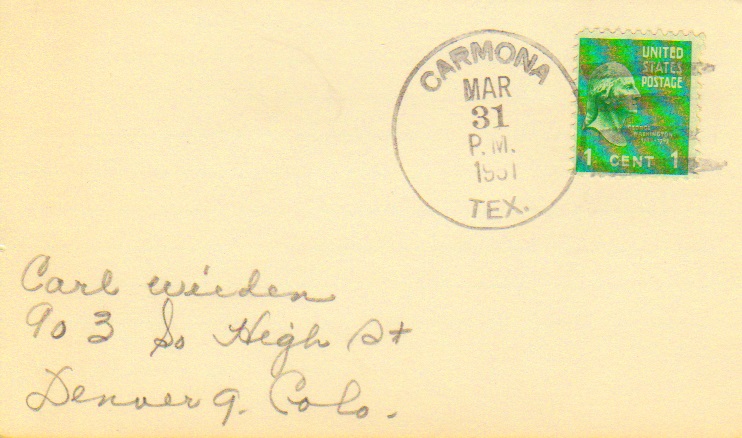 CARMONA
MAR
31
P.M.
1951
TEX.
UNITED
STATES
POSTAGE
GEORGE
WASHINGTON
1 CENT 1
Carl Wieden
903 So High St
Denver 9. Colo.